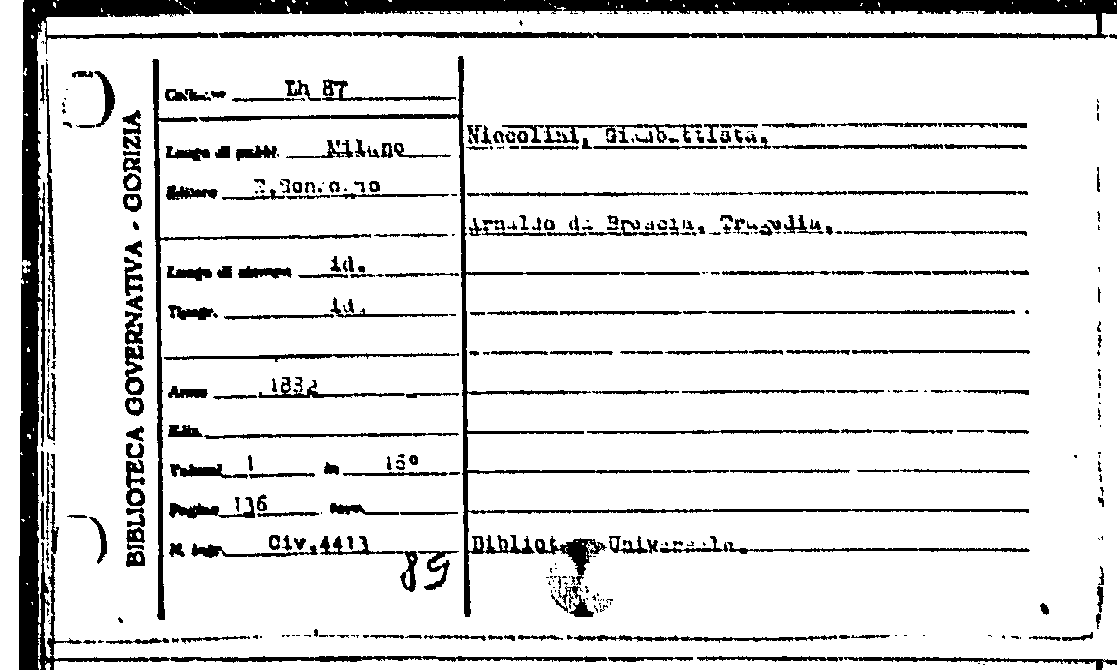 BIBLIOTECA GOVERNATIVA - GORIZIA
Collocaz. Lh 87
Luogo di pubbl. Milano
Editore E.Sonzogno
Luogo di stampa id.
Tipogr. id.
Anno 1882
Ediz.
Volumi 1 in 16°
Pagine 136 tavv.
N. ingr. Civ.4413
89
Niccolini, Giambattista.
Arnaldo da Brescia. Tragedia.
Biblioteca Universale.